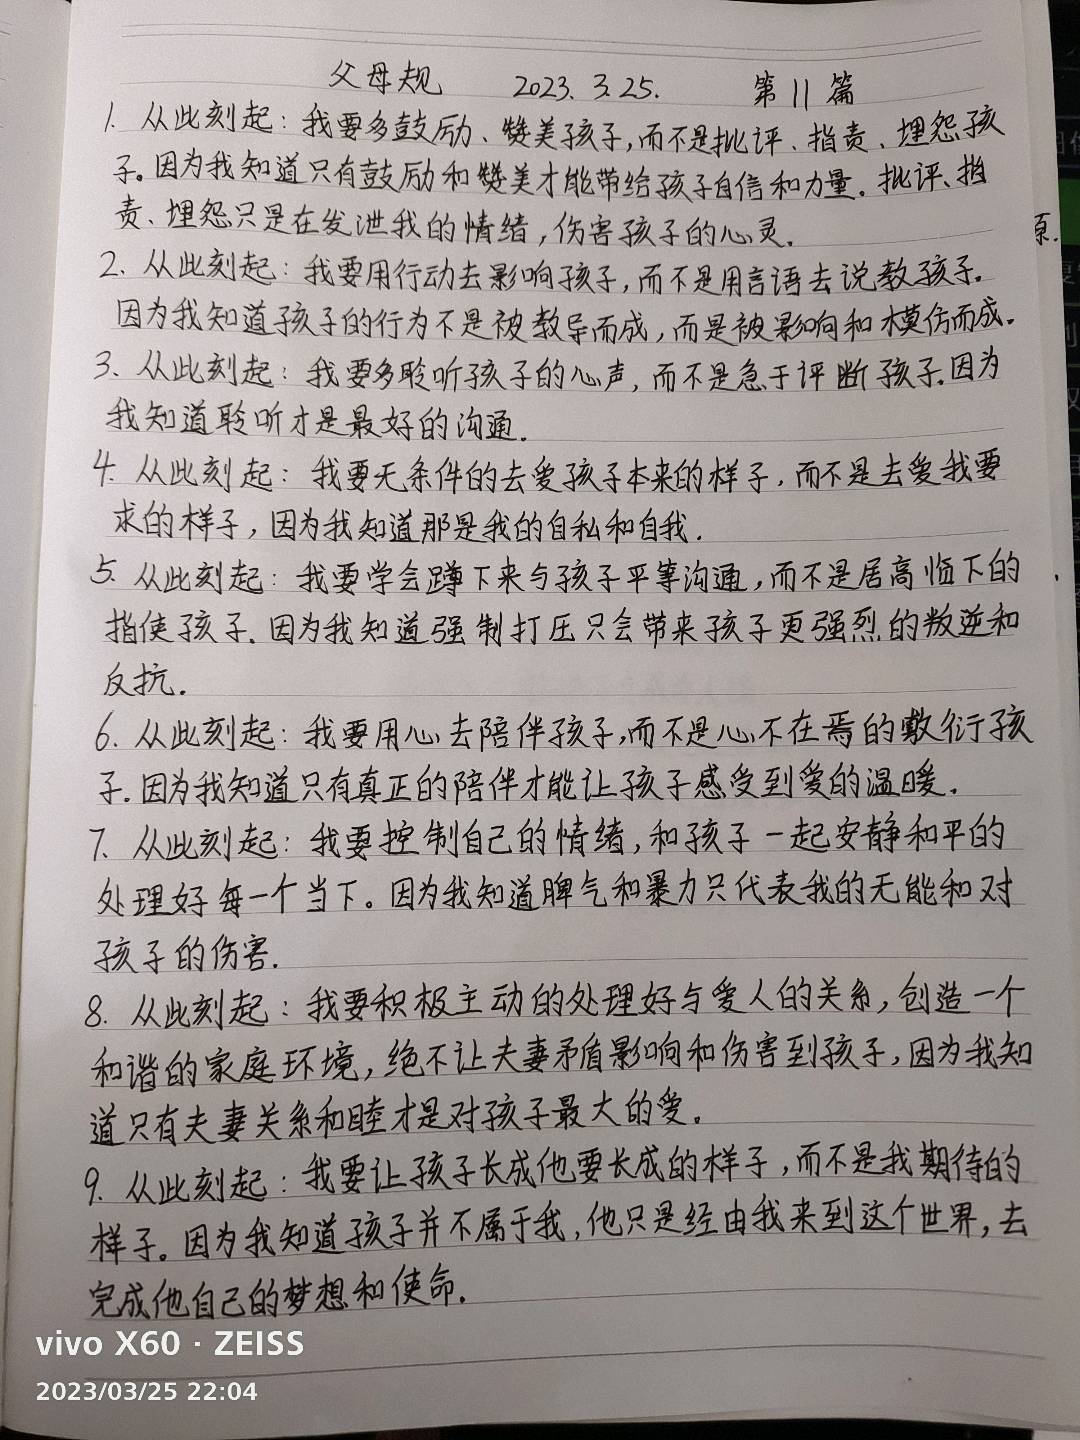 父母规 2023.3.25. 第11篇
1. 从此刻起：我要多鼓励、赞美孩子，而不是批评、指责、埋怨孩
子。因为我知道只有鼓励和赞美才能带给孩子自信和力量。批评、指
责、埋怨只是在发泄我的情绪，伤害孩子的心灵.
2. 从此刻起：我要用行动去影响孩子，而不是用言语去说教孩子.
因为我知道孩子的行为不是被教导而成，而是被影响和模仿而成.
3. 从此刻起：我要多聆听孩子的心声，而不是急于评断孩子.因为
我知道聆听才是最好的沟通.
4. 从此刻起：我要无条件的去爱孩子本来的样子，而不是去爱我要
求的样子，因为我知道那是我的自私和自我.
5. 从此刻起：我要学会蹲下来与孩子平等沟通，而不是居高临下的
指使孩子.因为我知道强制打压只会带来孩子更强烈的叛逆和
反抗.
6. 从此刻起：我要用心去陪伴孩子,而不是心不在焉的敷衍孩
子.因为我知道只有真正的陪伴才能让孩子感受到爱的温暖.
7. 从此刻起：我要控制自己的情绪,和孩子一起安静和平的
处理好每一个当下。因为我知道脾气和暴力只代表我的无能和对
孩子的伤害.
8. 从此刻起：我要积极主动的处理好与爱人的关系，创造一个
和谐的家庭环境，绝不让夫妻矛盾影响和伤害到孩子，因为我知
道只有夫妻关系和睦才是对孩子最大的爱。
9. 从此刻起：我要让孩子长成他要长成的样子，而不是我期待的
样子。因为我知道孩子并不属于我，他只是经由我来到这个世界，去
完成他自己的梦想和使命.
vivo X60 · ZEISS
2023/03/25 22:04